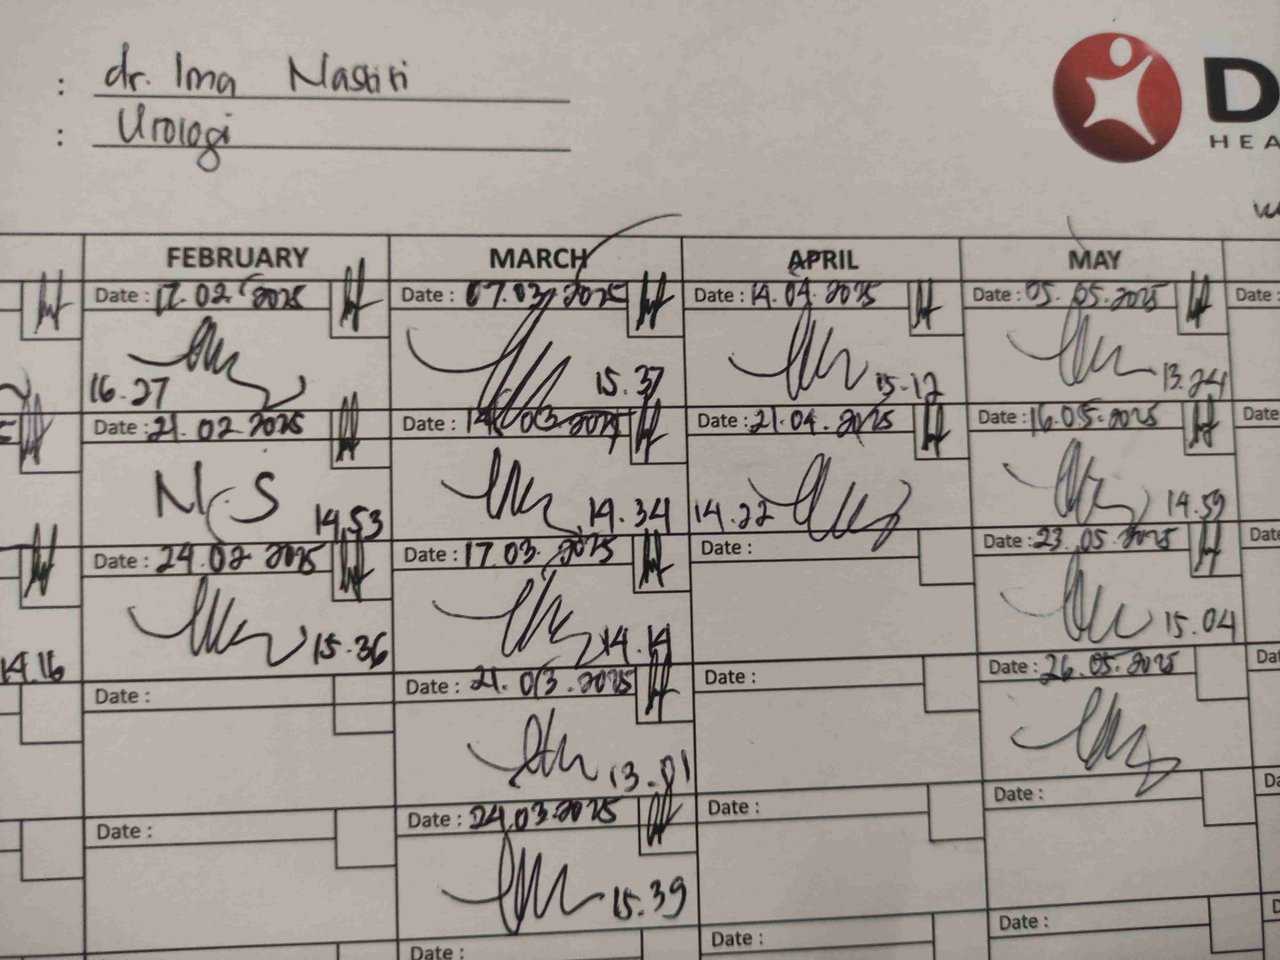 : dr. Ima Nastiti
: Urologi
D
HEA
FEBRUARY MARCH APRIL MAY
Date : 17.02.2025 Date : 07.03.2025 Date : 14.04.2025 Date : 05.05.2025 Date :
16.27 15.37 15.12 13.24
Date : 21.02.2025 Date : 14.03.2025 Date : 21.04.2025 Date : 16.05.2025 Date
N.S 14.53 14.34 14.22 14.59
Date : 24.02.2025 Date : 17.03.2025 Date : Date : 23.05.2025 Date
15.36 14.14 15.04
14.16
Date : Date : 21.03.2025 Date : Date : 26.05.2025 Da
13.01
Date : Date : 24.03.2025 Date : Date : Da
15.39
Date : Date : Date : D